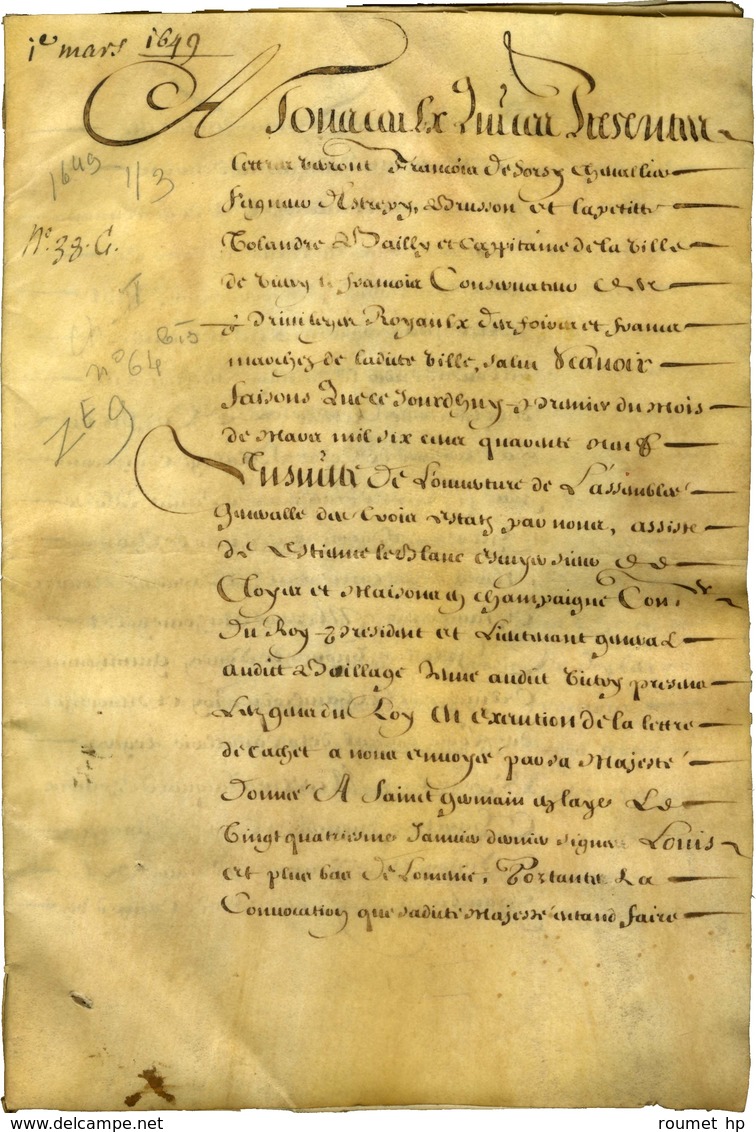 1er mars 1649
A Tous ceulx Qui ces Presentes
lettres verront François de Chevallier
Seigneur d'Estrepy, Brusson et la petitte
Tolandre Bailly et Cappitaine de la Ville
de Vitry le françois Conservateur des
privileges Royaulx des foires et francs
marchez de ladicte Ville, salut Sçavoir
faisons Que ce Jourdhuy premier du Mois
de Mars mil six cens quarante neuf
Ensuitte De L'ouverture de L'assemblée
generalle des trois estatz par nous, assisté
de Estienne le Blanc escuyer sieur de
Cloyes et Maisons en champaigne Coner
du Roy president et Lieutenant general
audict Bailliage Tenue audict Vitry presence
des gens du Roy en execution de la lettre
de cachet a nous envoyée par sa Majesté
Donnée A Sainct germain en laye Le
Vingt quatriesme Janvier dernier signée Louis
et plus bas De Lomenie, Portante La
Convocation que sadicte Majesté entand faire
1649 1/3
No. 38. G.
II
no 64 bis
roumet hp